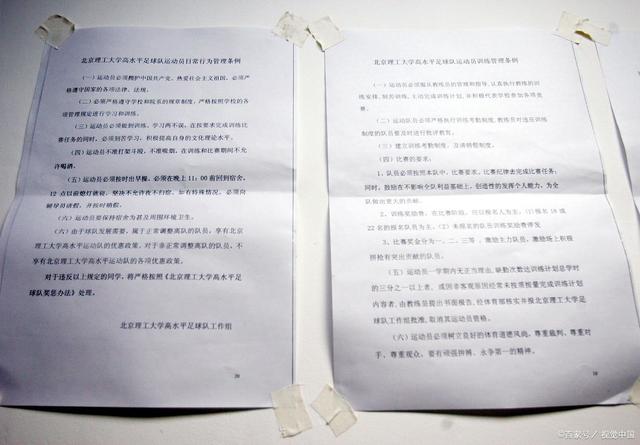 北京理工大学高水平足球队运动员日常行为管理条例
(一)运动员必须拥护中国共产党、热爱社会主义祖国、必须严
格遵守国家的各项法律、法规。
(二)必须严格遵守学校和院系的规章制度,严格按照学校的各
项管理规定进行学习和训练。
(三)运动员必须做到训练、学习两不误,在按要求完成训练比
赛任务的同时,必须刻苦学习,积极提高自身的文化理论水平。
(四)运动员不准打架斗殴,不准吸烟,在训练和比赛期间不允
许喝酒。
(五)运动员必须按时出早操,必须在晚上11:00前回到宿舍,
12点以前整灯就寝,坚决不允许夜不归宿。如有特殊情况,必须向
辅导员请假,并按时销假。
(六)运动员要保持宿舍为甚及周围环境卫生。
(六)由于球队发展需要,属于正常调整离队的队员,享有北京
理工大学高水平运动队的优惠政策。对于非正常调整离队的队员,不
享有北京理工大学高水平运动队的各项优惠政策。
对于违反以上规定的同学,将严格按照《北京理工大学高水平足
球队奖惩办法》处理。
北京理工大学高水平足球队工作组
20
北京理工大学高水平足球队运动员训练管理条例
(一)运动员必须服从教练员的管理和指导,认真执行教练的训
练安排,刻苦训练,主动完成训练计划,并积极代表学校参加各项竞
赛。
(二)运动队员必须严格执行训练考勤制度,教练员对违反训练
制度的队员要及时进行批评教育。
(三)建立训练考勤制度,及请销假制度。
(四)比赛的要求:
1、队员必须按照本队中,比赛要求,比赛纪律去完成比赛任务;
同时,鼓励在不影响全队利益基础上,创造性的发挥个人能力,为全
队做出更大的贡献。
2、训练奖励费,在比赛阶段,以以报名人为主:(1)报名18或
22名的报名队员为主。(2)未报名的队员训练奖励费停发
3、比赛奖金分为一、二、三等,激励主力队员,激励场上积极
拼抢有突出贡献的队员。
(五)运动员一学期内无正当理由,缺勤次数达训练计划总学时
的三分之一以上者,或因非客观原因经常未按质按量完成训练计划
内容者,由教练员提出书面报告,经体育部核实并报北京理工大学足
球队工作组批准,取消其运动员资格。
(六)运动员必须树立良好的体育道德风尚,尊重裁判、尊重对
手、尊重观众,要有顽强拼搏、永争第一的精神。
©百家号/视觉中国